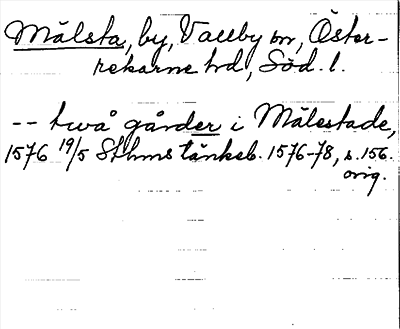 Mälsta, by, Vallby sn, Öster-
rekarne hd, Söd. l.
-- två gårder i Mälestade,
1576 19/5 Sthms tänkeb. 1576-78, s. 156.
orig.